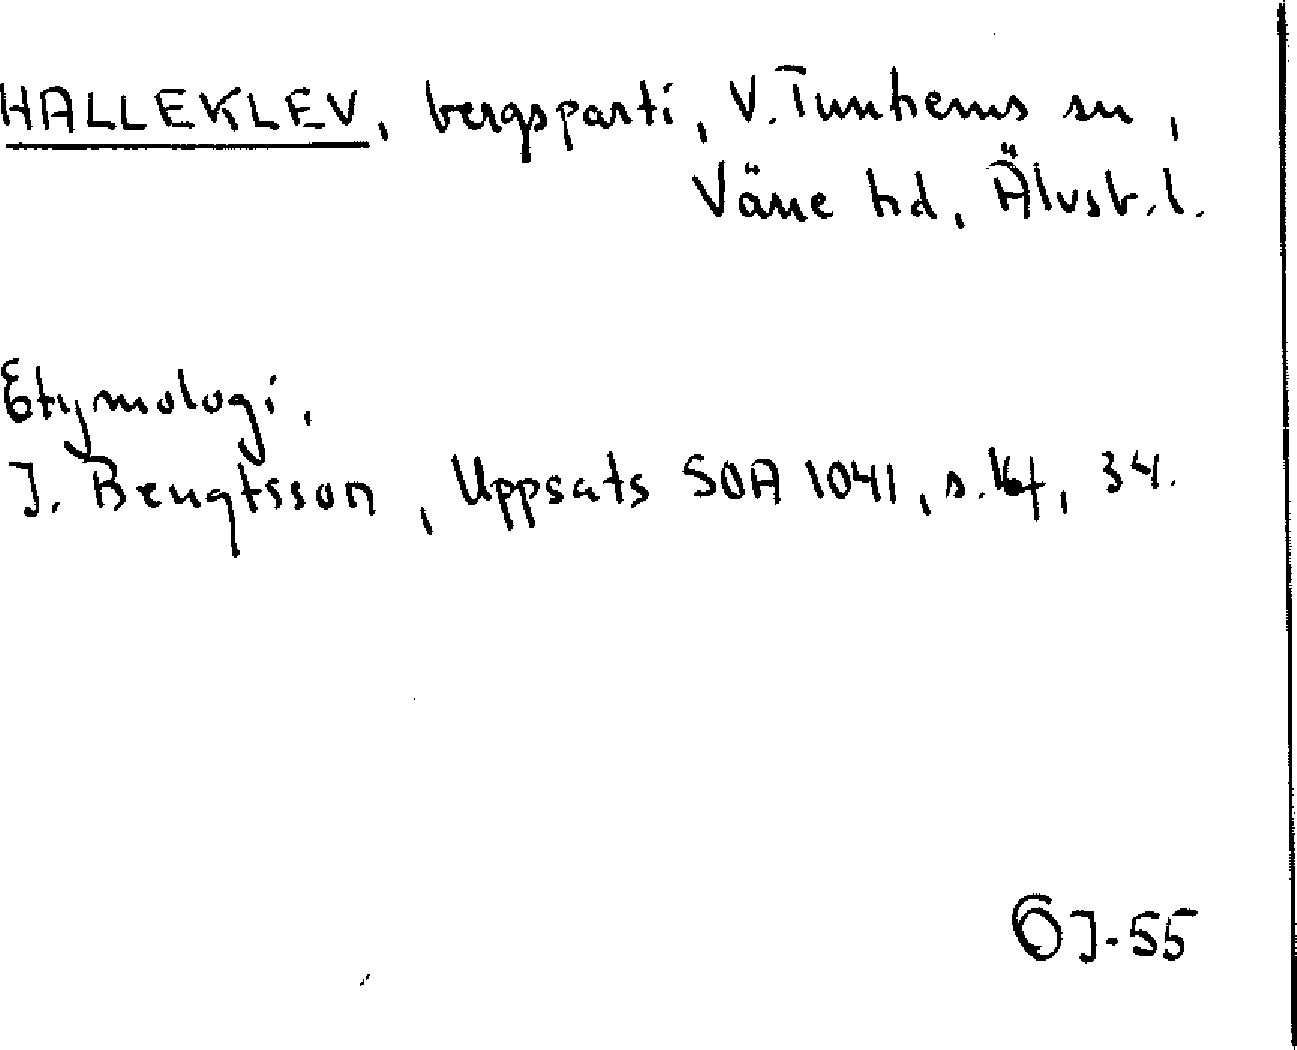 HALLEKLEV, bergsparti, V. Tunhems sn,
Väne hd, Älvsb. l.
Etymologi.
J. Bengtsson, Uppsats SOA 1041, s. 16f, 34.
ÖJ-55